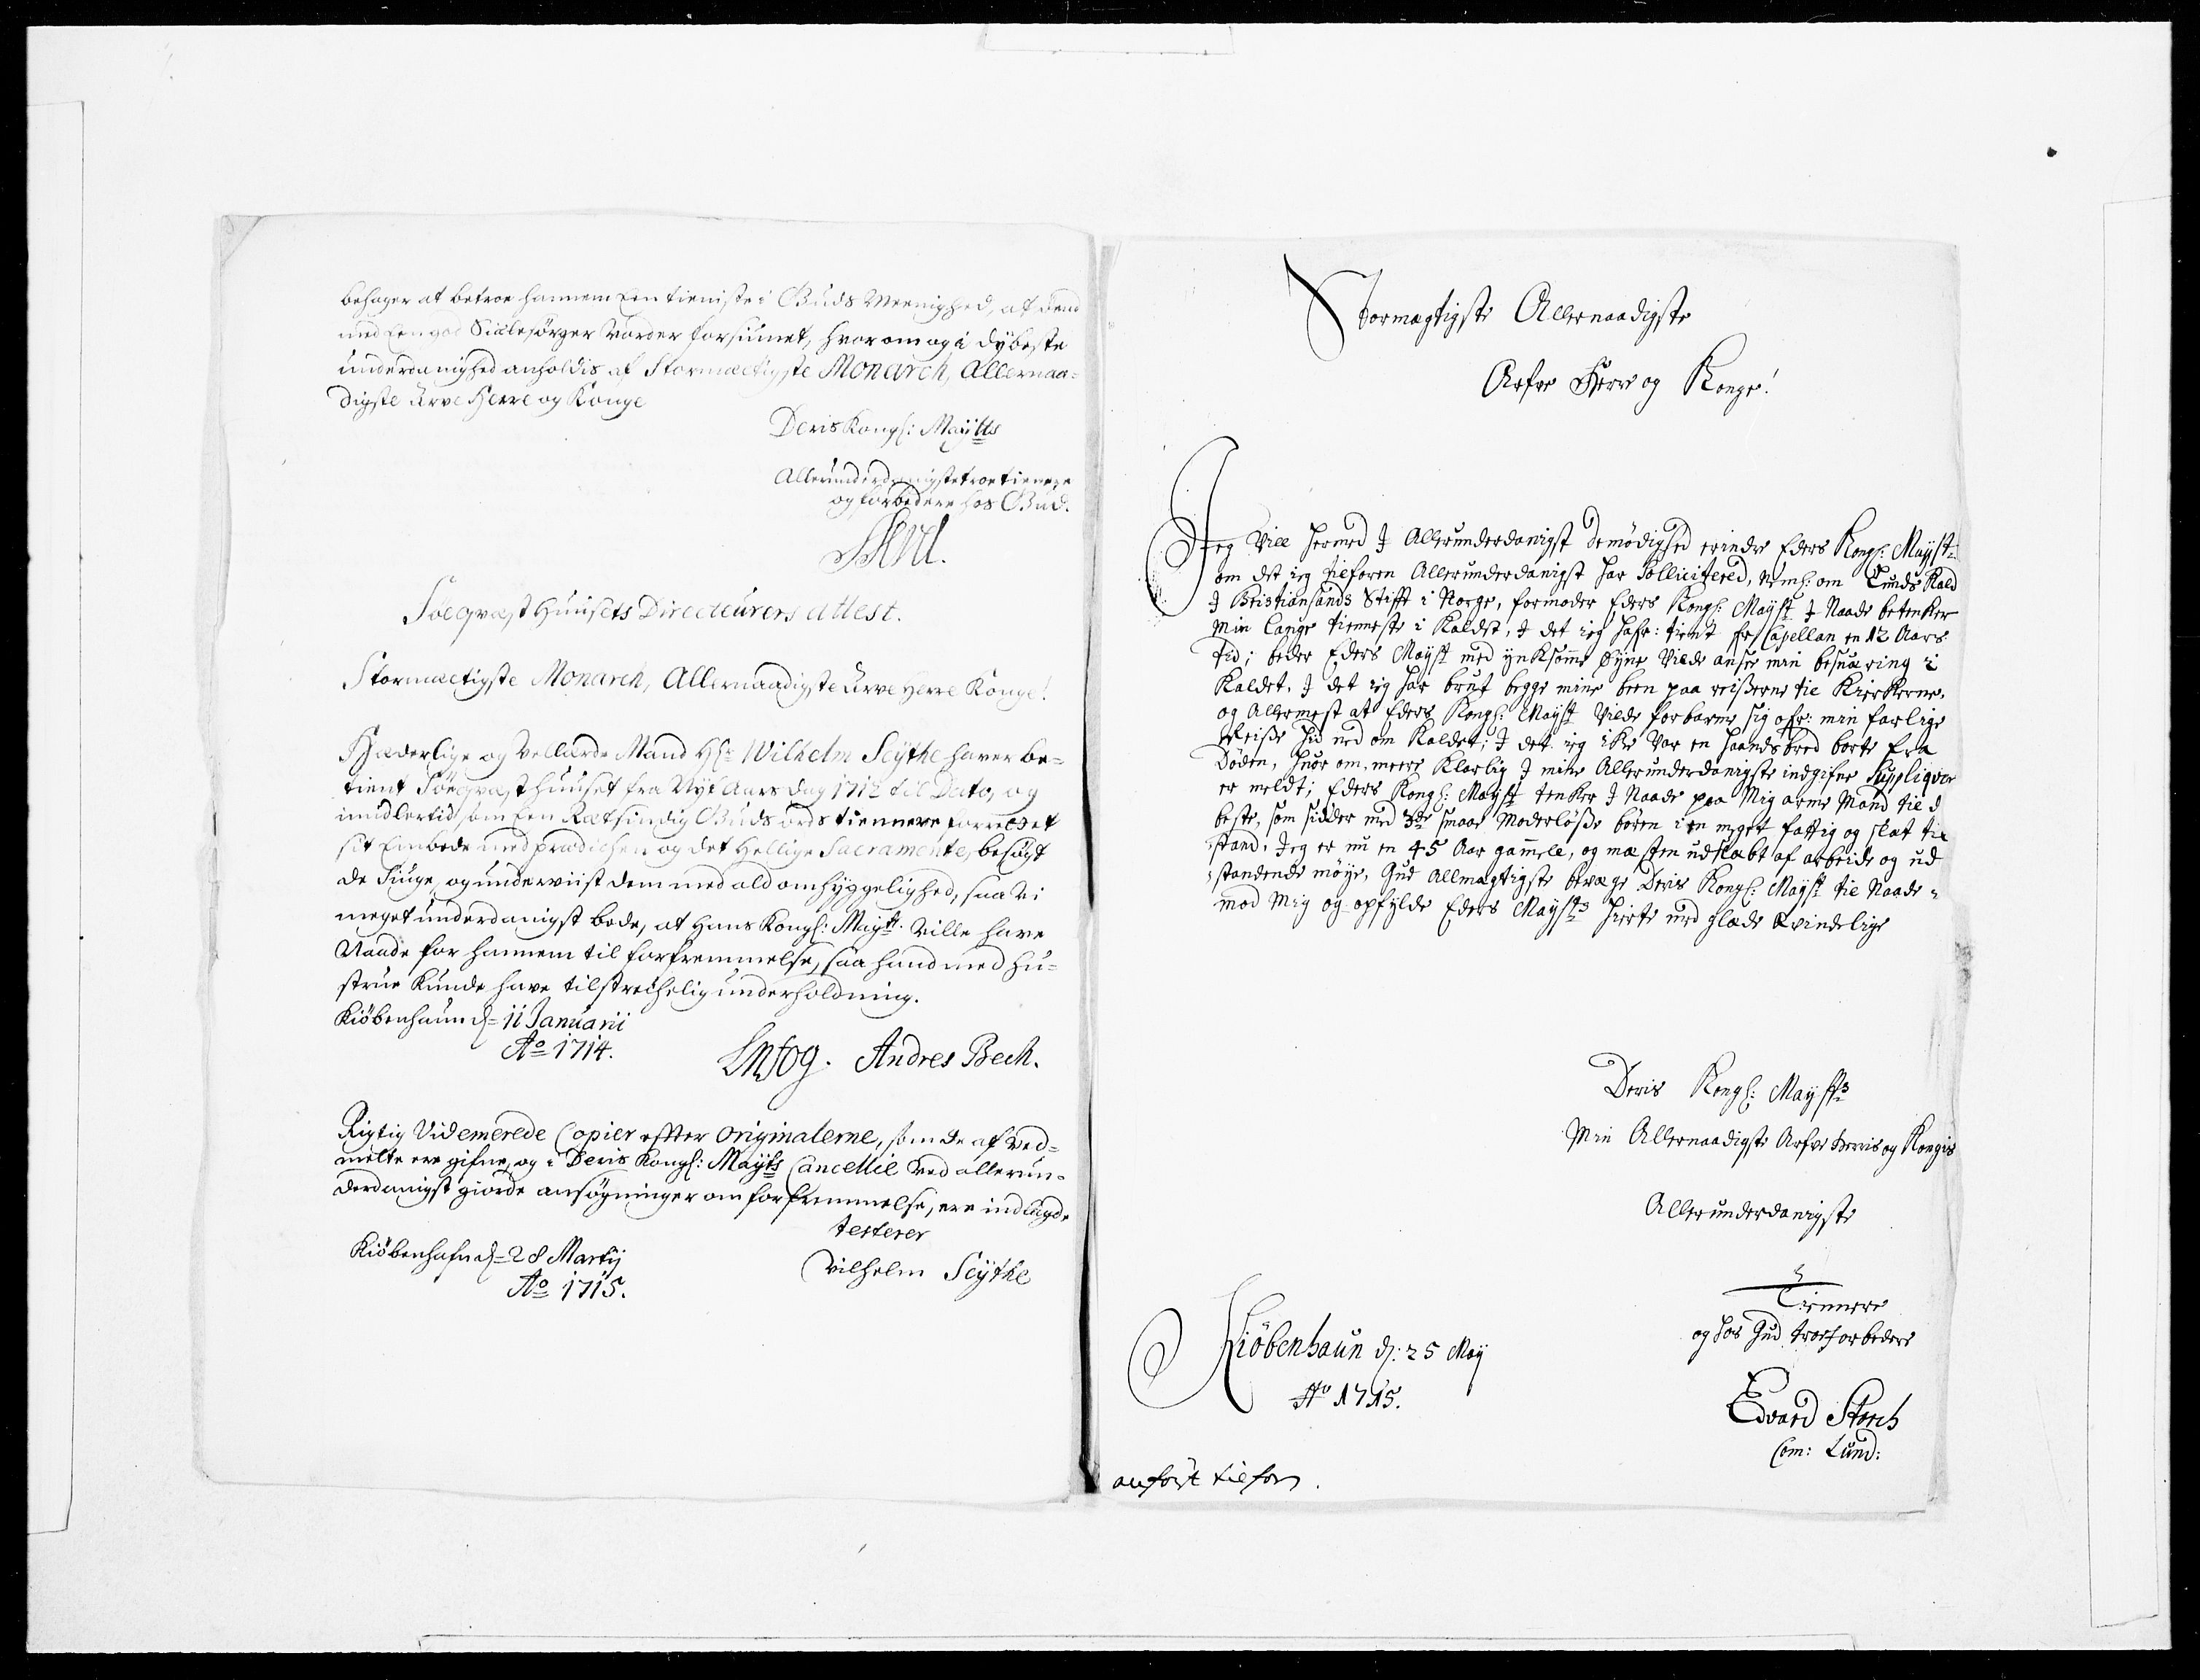 behager at betroe hannem Een tieniste i Guds Meenighed, at dend
med Een god Siælesørger vorder forsiunet, hvorom og i dybeste
underdanighed anholdis af Stormæctigste Monarch, Allernaa-
digste Arve Herre og Konge
Deris Kongl: Maytts
Allerunderdanigste troe tienere
og forbedere hos Gud.
Søeqvæst Huusets Directeurers Attest.
Stormæctigste Monarch, Allernaadigste Arve Herre Konge!
Hæderlige og Vellærde Mand Hr Wilhelm Seÿthe haver be-
tient Søeqvæsthuuset fra Nyt Aars dag 1712 til Dato, og
imidlertid som Een Rætsindig Guds ords tiennere forrettet
sit Embede med prædichen og det Hellige Sacramente, besøgt
de Siuge, og underviist dem med ald omhyggelighed, saa vi
meget underdanigst bede, at Hans Kongl: Maytt. ville have
Naade for hannem til forfremmelse, saa hand med Hu-
strue kunde have tilstrechelig underholdning.
Kiöbenhaun d= 11 Januarii
Ao 1714.
Andres Bech.
Rigtig Videmerede Copier effter Originalerne, som de af ved-
melte ere gifne, og i Deris Kongl: Mayts Cancellie ved allerun-
derdanigst giorde ansøgninger om forfremmelse, ere indlagde
testerer
Kiöbenhafn d= 28 Martij
Ao 1715.
Vilhelm Seÿthe
Stormægtigste Allernaadigste
Arfve Herre og Konge!
Jeg Vill hermed J Allerunderdanigst demödighed erindre Eders Kongl: Mayst:
om det ieg tilforen Allerunderdanigst har Sollicitered, neml: om Lunds Kald
J Christiansands Stifft i Norge, formoder Eders Kongl: Mayst J Naade betenker
Min lange tienneste i Kaldet, J det ieg hafr: tient for Capellan en 12 Aars
tid; beder Eders Mayst med ynksomme Øyne Vilde ansee min besuæring i
Kaldet, J det ieg har brut begge mine been paa reißerne til Kierkerne,
og Allermest at Eders Kongl: Mayst Vilde forbarme sig ofr: min farlige
Reiße hid ned om Kaldet; J det ieg ike Var en haandsbred borte fra
Döden, huor om meere Klarlig J mine Allerunderdanigste indgifne Suppliqver
er meldt; Eders Kongl: Mayst tenker J Naade paa Mig arme Mand til d
beste, som sidder med 3de smaae Moderløße børen i en meget fattig og slæt til
stand. Jeg er nu en 45 Aar gammell, og mæsten udslæbt af arbeide og ud
standende möye, Gud Allmægtigste bevæge Deris Kongl: Mayst til Naade
mod Mig og opfylde Eders Maysts hierte med glæde Evindelige
Deris Kongl: Maysts
Min Allernaadigste Arfve Herris og Kongis
Allerunderdanigste
Tiennere
og hos Gud troe forbedere
Kiöbenhaun d: 25 May
Ao 1715.
Edvard Storch
Com: Lund:
anført tilforn.